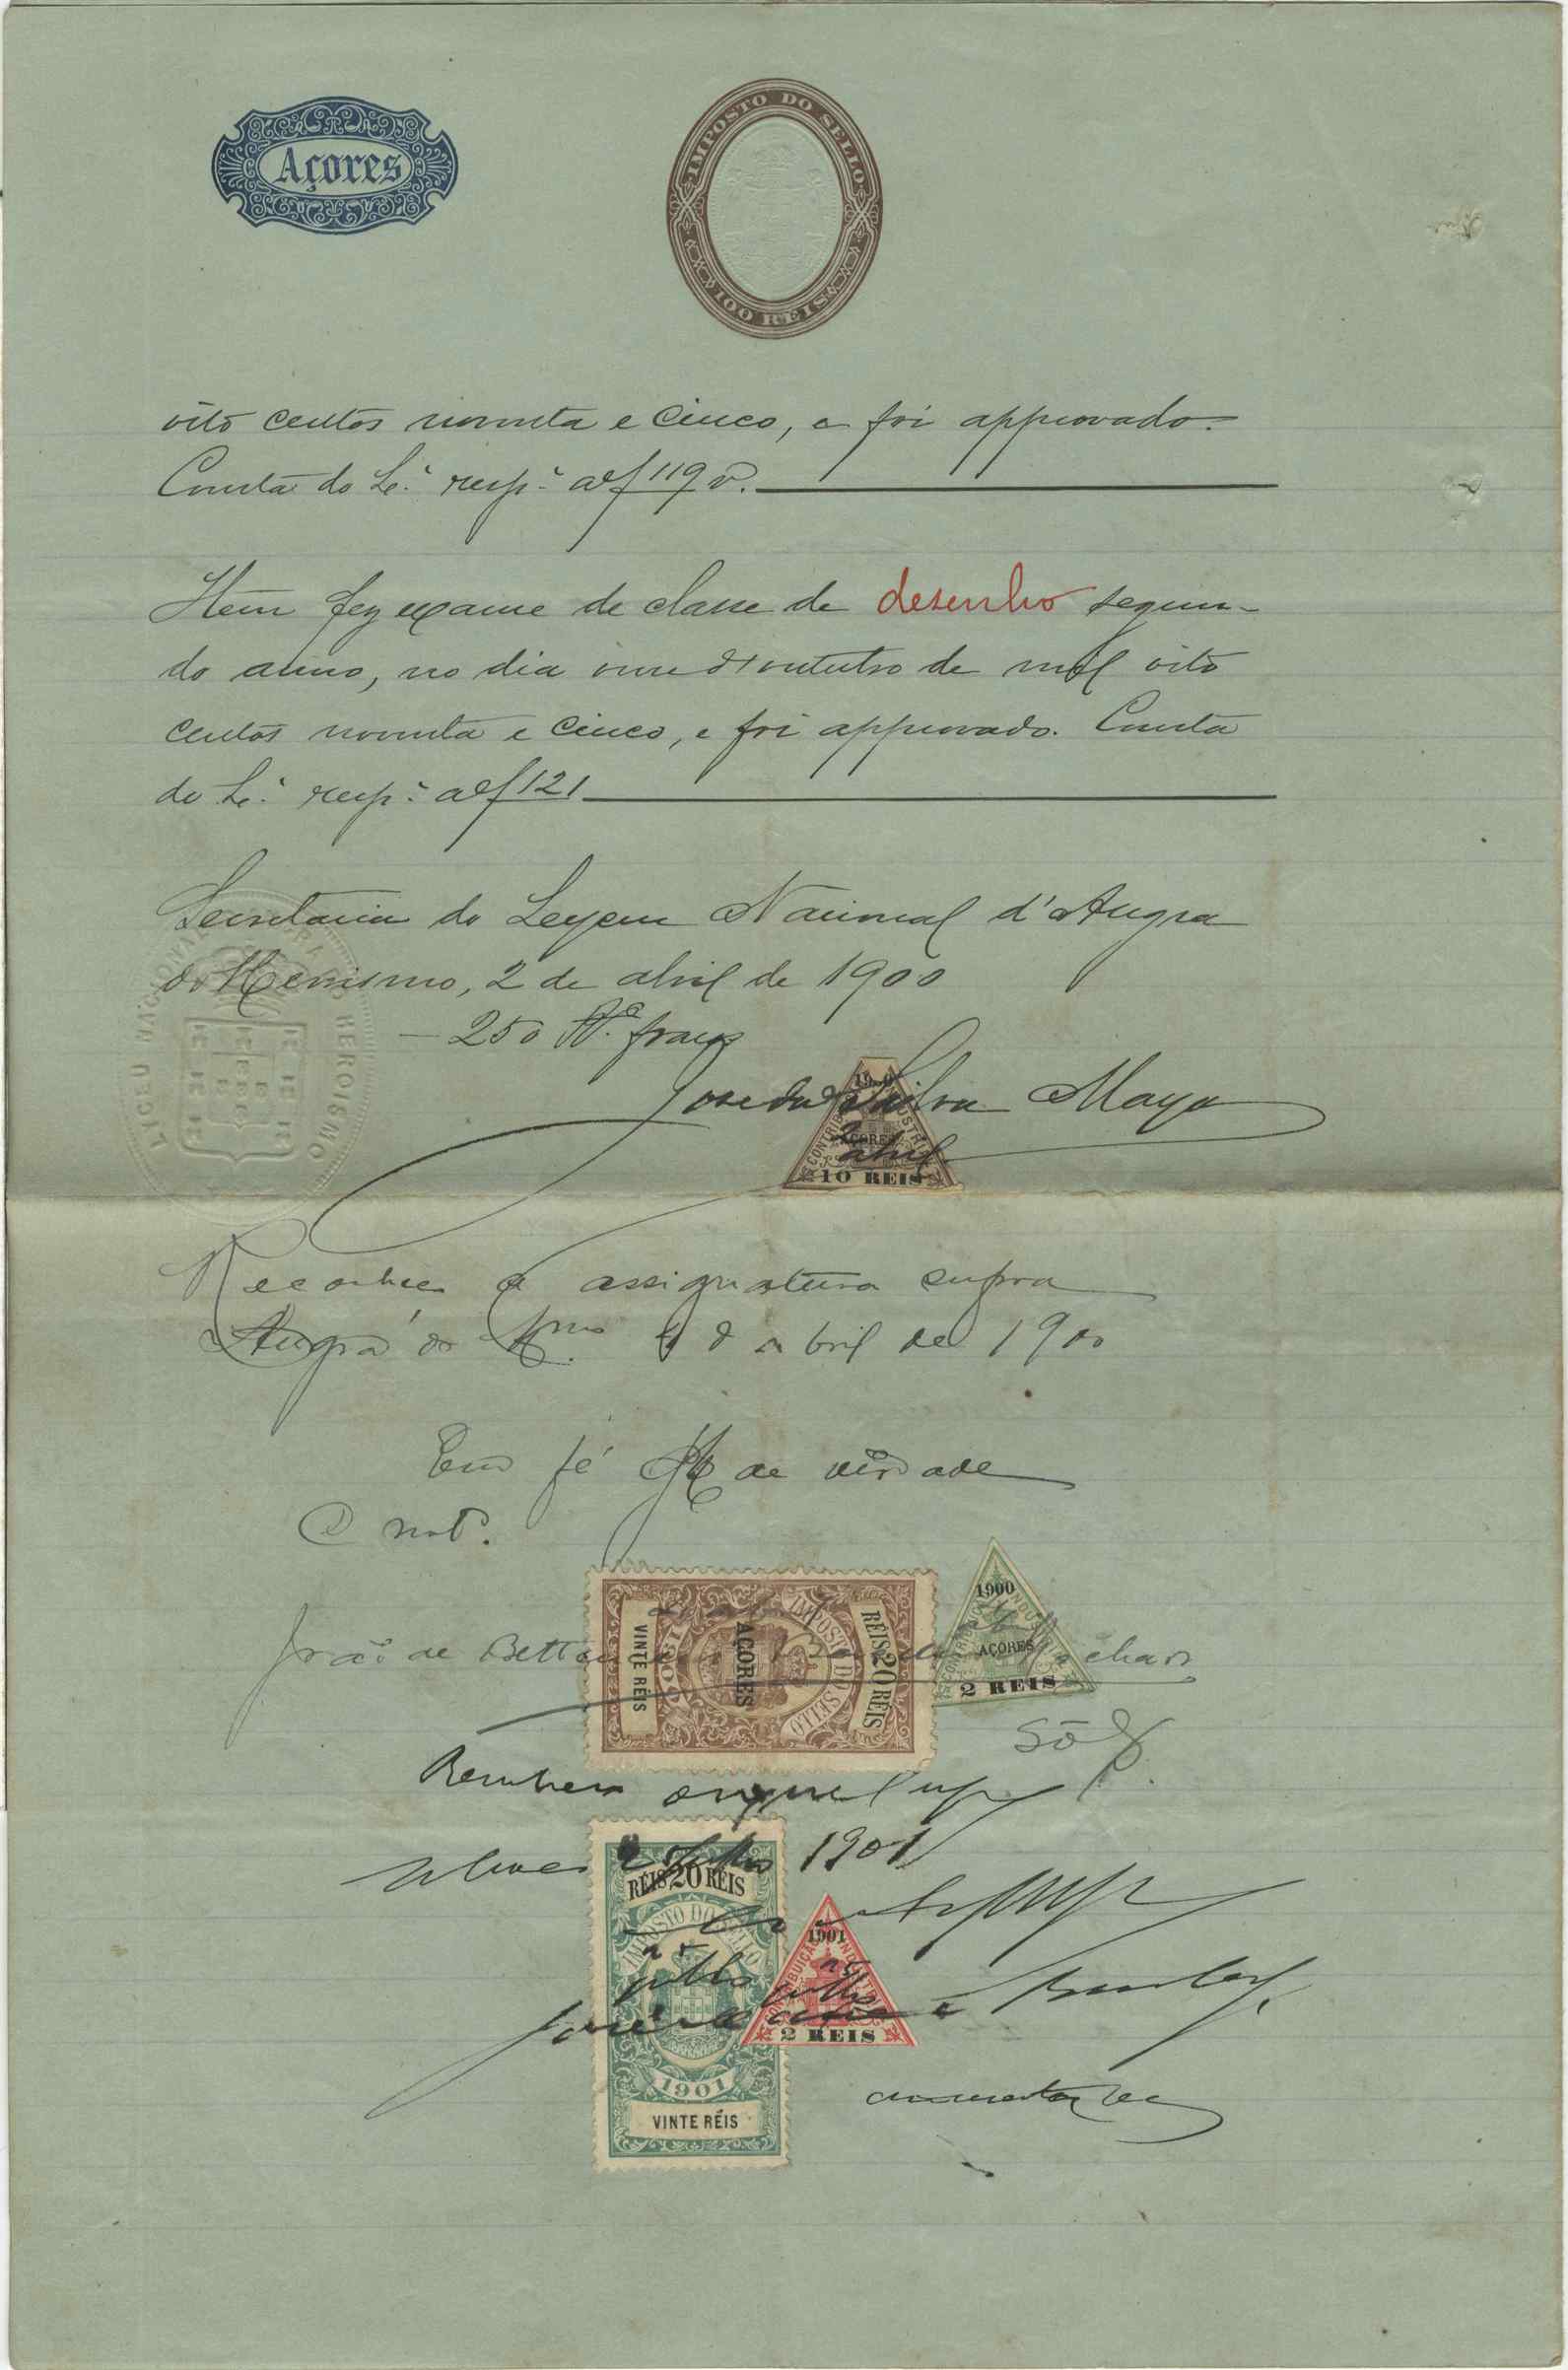 Açores
IMPOSTO DO SELLO
100 REIS
oito centos noventa e cinco, e foi approvado.
Consta do L.º resp.º a f 119 v.
Item fez exame de classe de desenho segun-
do anno, no dia onze d'outubro de mil oito
centos noventa e cinco, e foi approvado. Consta
do L.º resp.º a f 121
Secretaria do Lyceu Nacional d'Angra
do Heroismo, 2 de abril de 1900
LYCEU NACIONAL ANGRA DO HEROISMO
250 R.s
José da Silva Maya
1900
CONTRIBUIÇÃO INDUSTRIAL
AÇORES
2 abril
10 REIS
Reconheço a assignatura supra
Angra do H.mo d abril de 1900
Em fé de verdade
O not.º
REIS 20 REIS
IMPOSTO DO SELLO
AÇORES
1900
VINTE RÉIS
1900
CONTRIBUIÇÃO INDUSTRIAL
AÇORES
2 REIS
João de Bettencourt Machado
50 r
Reconheço o signal sup
2 Julho 1901
RÉIS 20 REIS
IMPOSTO DO SELLO
1901
VINTE RÉIS
1901
CONTRIBUIÇÃO INDUSTRIAL
2 REIS
julho
José